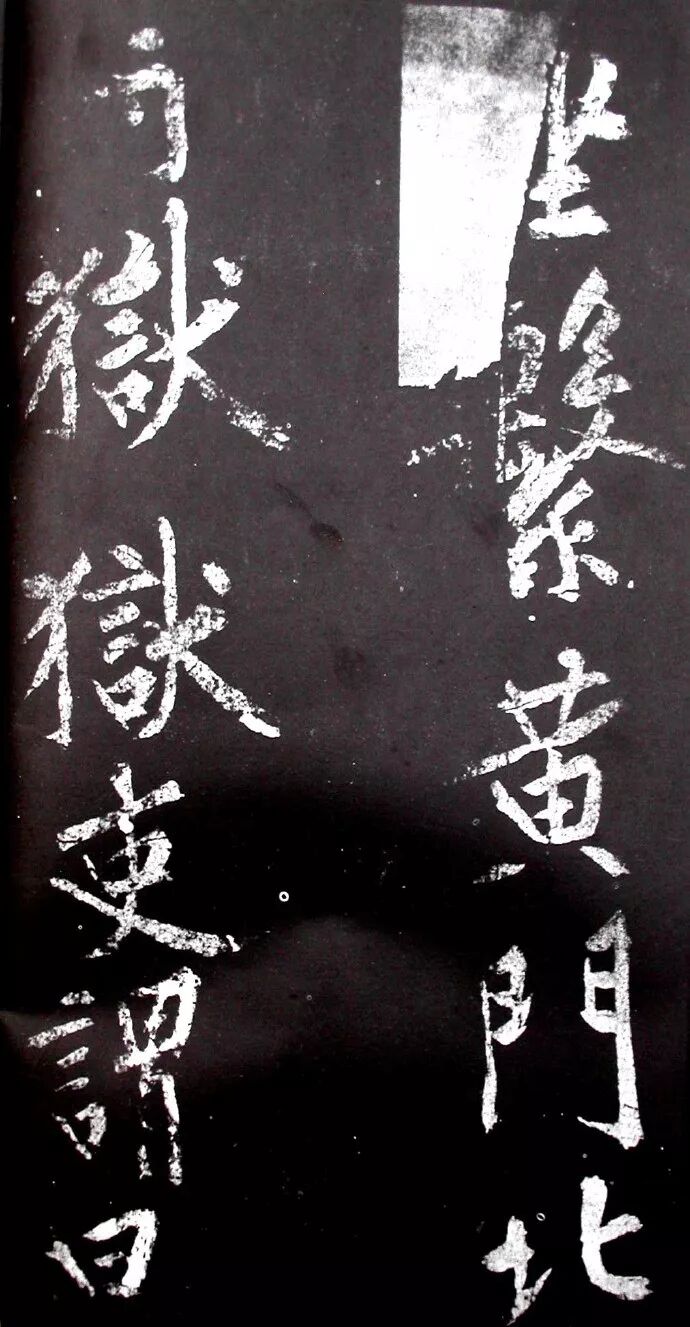 坐繫黄門北
寺獄獄吏謂曰